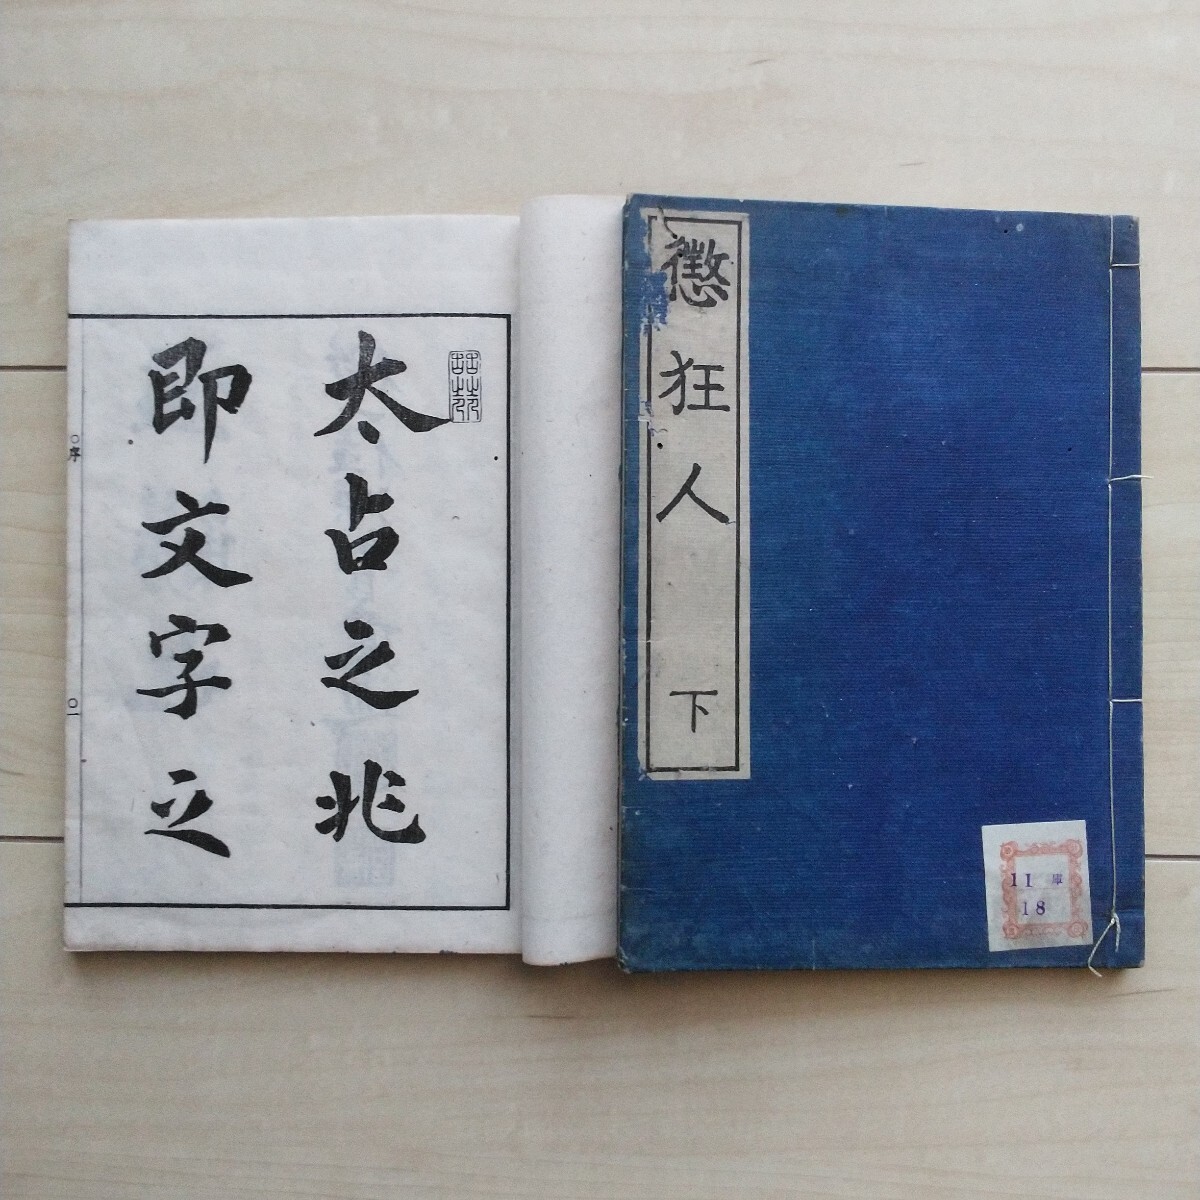 懲狂人 下
11 庫
18
太占之兆
即文字之
〇序
〇一